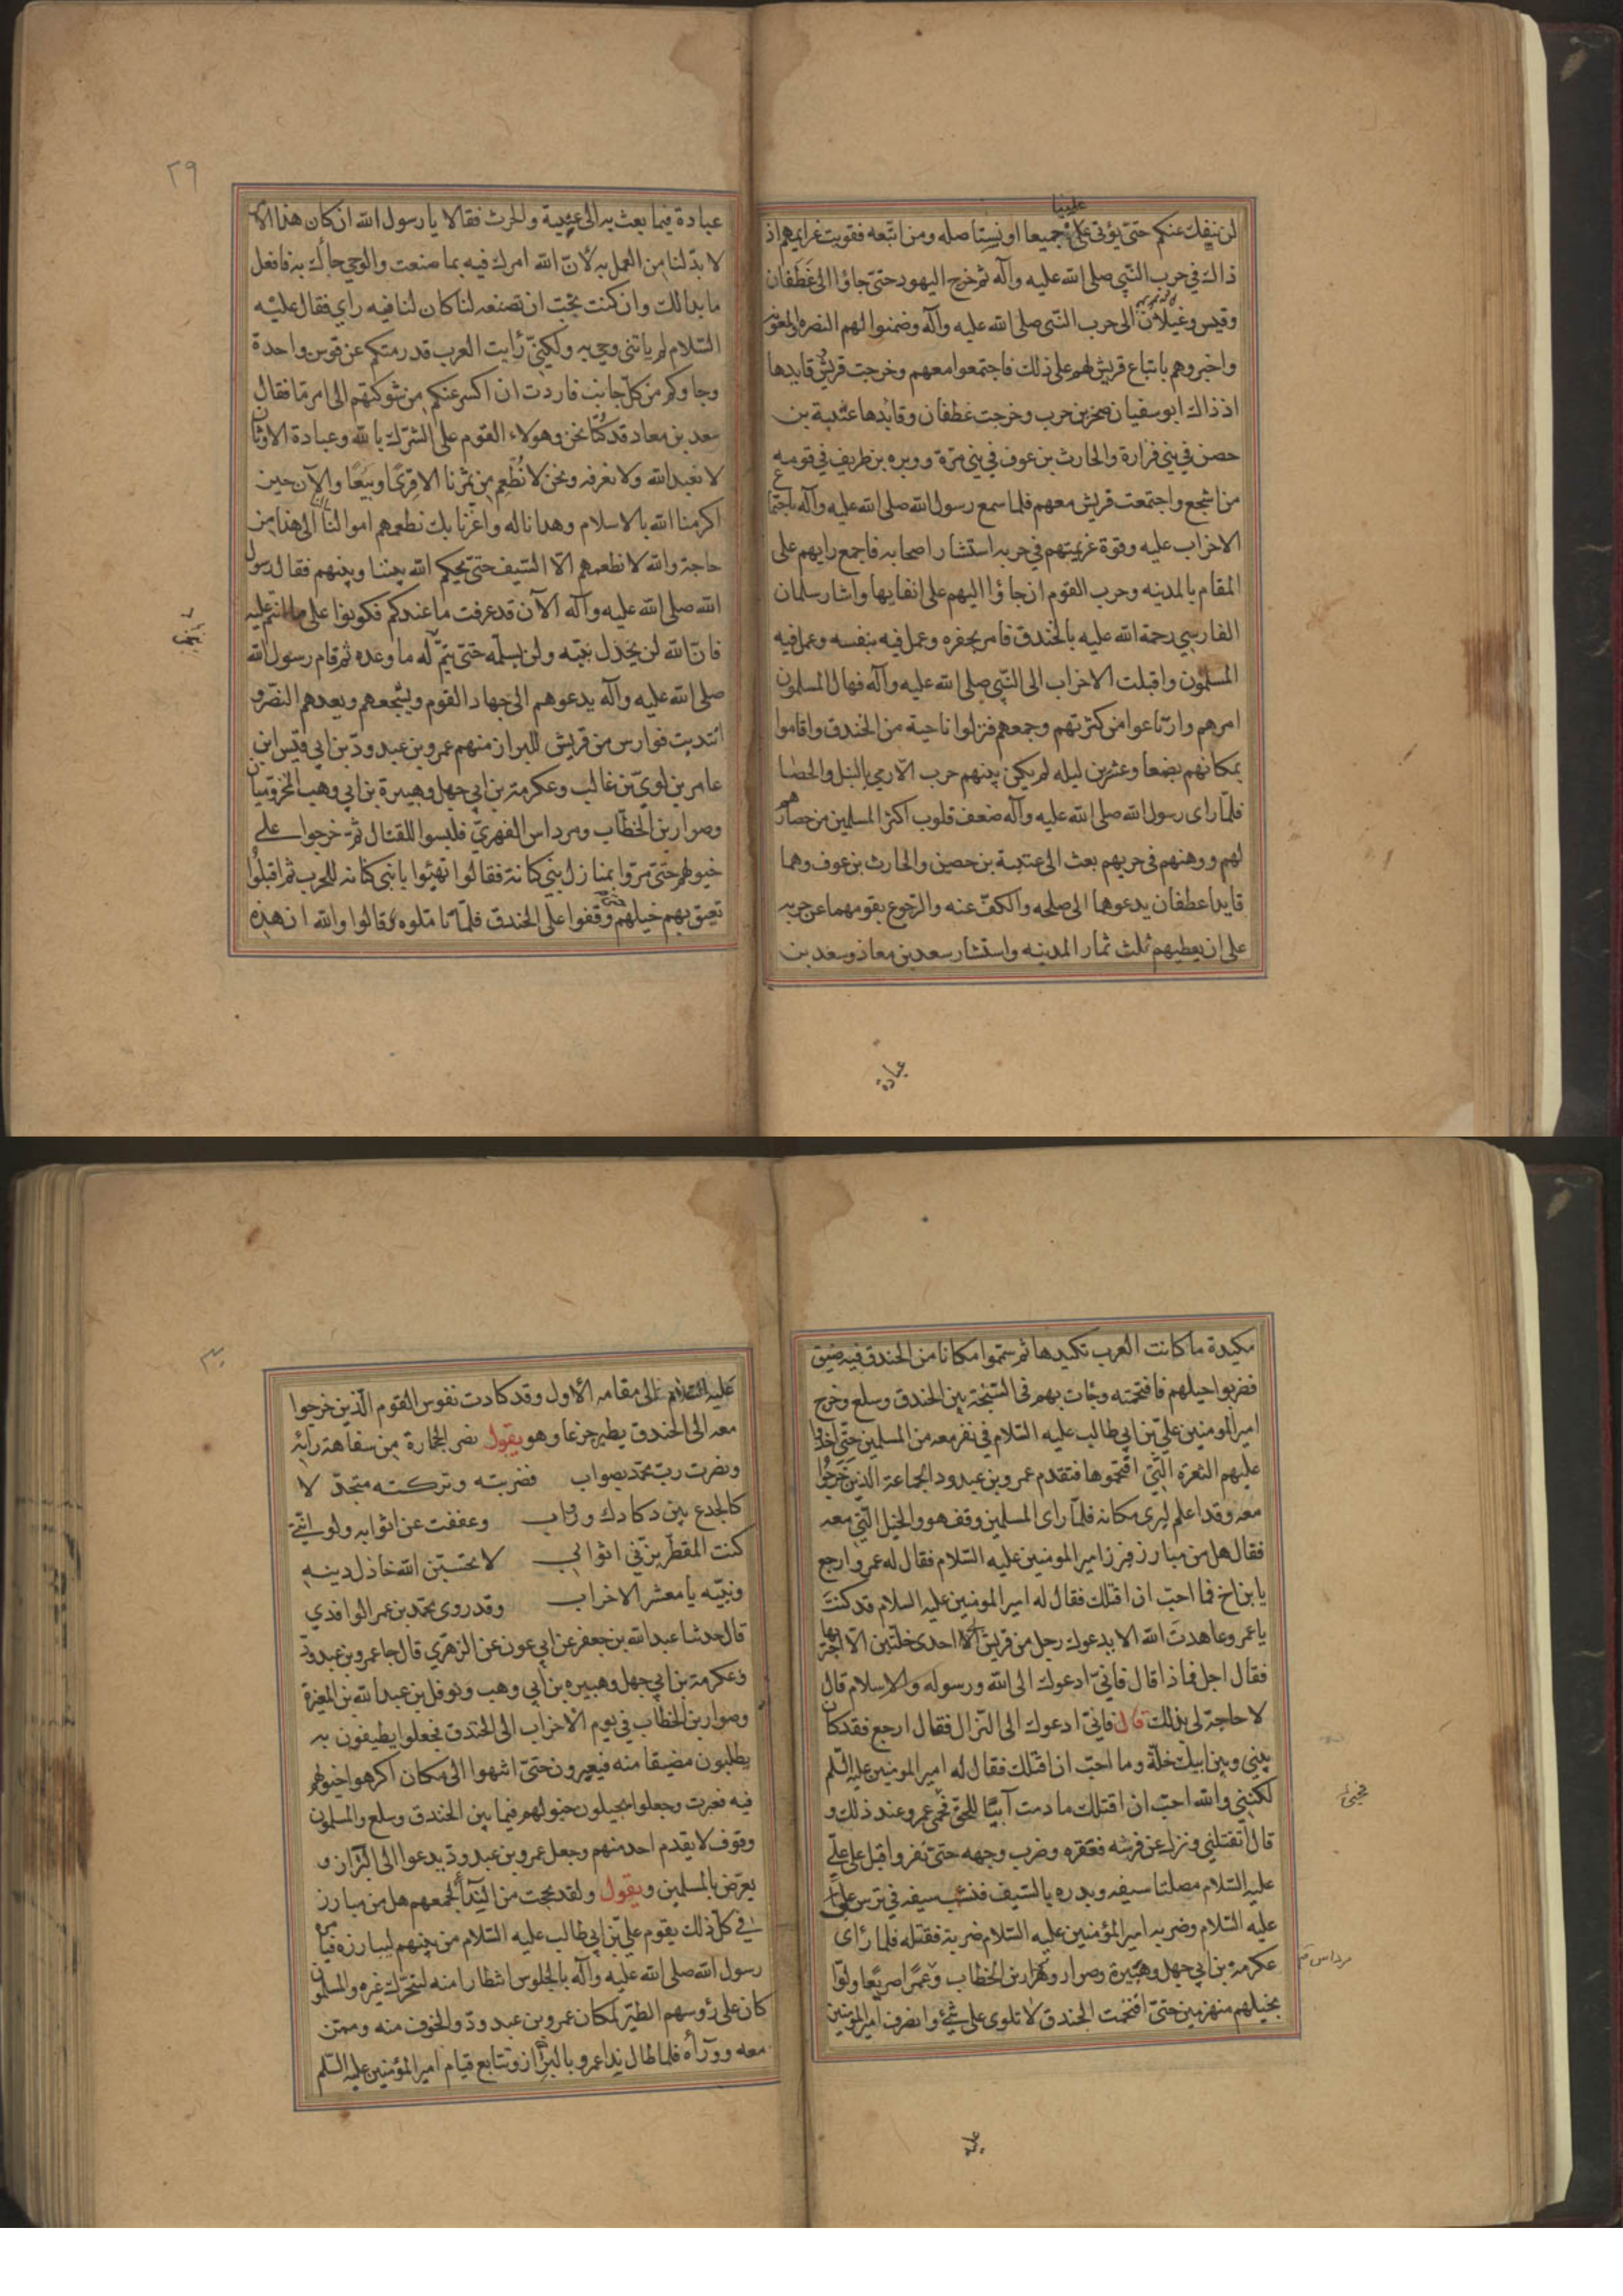 علينا
لن ننفك عنكم حتى يؤتى على جميعا او نستاصله ومن اتبعه فقويت غرايمهم اذ
ذاك في حرب النبي صلى الله عليه وآله ثم خرج اليهود حتى جاؤا الى غطفان
وقيس وغيلان الى حرب النبي صلى الله عليه وآله وضمنوا لهم النصره والمعونه
واخبروهم باتباع قريش لهم على ذلك فاجتمعوا معهم وخرجت قريش وقايدها
اذ ذاك ابو سفيان صخر بن حرب وخرجت غطفان وقايدها عتيبة بن
حصن في بني فزارة والحارث بن عوف في بني مرة ووبره بن طريف في قومه
من اشجع واجتمعت قريش معهم فلما سمع رسول الله صلى الله عليه وآله باجتماع
الاخراب عليه وقوة غريمتهم في حربه استشار اصحابه فاجمع رايهم على
المقام بالمدينه وحرب القوم ان جاؤا اليهم على انقابها واشار سلمان
الفارسي رحمة الله عليه بالخندق فامر بحفره وعمل فيه بنفسه وعمل فيه
المسلمون واقبلت الاخراب الى النبي صلى الله عليه وآله فهال المسلمون
امرهم وارتاعوا من كثرتهم وجمعهم فنزلوا ناحية من الخندق واقاموا
بمكانهم بضعا وعشرين ليله لم يكن بينهم حرب الا الرمي بالنبل والحصا
فلما راى رسول الله صلى الله عليه وآله ضعف قلوب اكثر المسلمين من حصارهم
لهم ووهنهم في حربهم بعث الى عتيبة بن حصين والحارث بن عوف وهما
قايدا عطفان يدعوهما الى صلحه والكف عنه والرجوع بقومهما عن حربه
على ان يعطيهم ثلث ثمار المدينه واستشار سعد بن معاذ وسعد بن
عبادة
٢٩
عبادة فيما بعث به الى عيينة والحرث فقالا يا رسول الله ان كان هذا الامر
لا بد لنا من العمل به لان الله امرك فيه بما صنعت والوحي جاءك به فافعل
ما بدا لك وان كنت تحب ان تصنعه لنا كان لنا فيه راي فقال عليه
السلام لم ياتني وحي به ولكني رايت العرب قد رمتكم عن قوس واحدة
وجاوكم من كل جانب فاردت ان اكسر عنكم من شوكتهم الى امر ما فقال
سعد بن معاد قد كنا نحن وهولاء القوم على الشرك بالله وعبادة الاوثان
لا نعبد الله ولا نعرفه ونحن لا نطعم من ثمرنا الا قرى او بيعا والآن حين
اكرمنا الله بالاسلام وهدانا له واعزنا بك نطعمهم اموالنا الى هذا من
حاجة والله لا نطعمهم الا السيف حتى يحكم الله بيننا وبينهم فقال رسول
الله صلى الله عليه وآله الآن قد عرفت ما عندكم فكونوا على ما انتم عليه
فان الله لن يخذل نبيه ولن يسلمه حتى يتم له ما وعده ثم قام رسول الله
صلى الله عليه وآله يدعوهم الى جهاد القوم ويشجعهم ويعدهم النصر و
انتدبت فوارس من قريش للبراز منهم عمرو بن عبدود بن ابي قيس ابن
عامر بن لوي بن غالب وعكرمة بن ابي جهل وهبيرة بن ابي وهب المخزوميان
وضوار بن الخطاب ومرداس الفهري فلبسوا للقتال ثم خرجوا على
خيولهم حتى مروا بمنازل بني كنانة فقالوا تهيئوا يا بني كنانه للحرب ثم اقبلوا
تعيق بهم خيلهم حتى وقفوا على الخندق فلما تاملوه وقالوا والله ان هذه
مكيدة ما كانت العرب تكيدها ثم يمموا مكانا من الخندق فيه ضيق
فضربوا خيلهم فاقتحمته وجات بهم في السبخة بين الخندق وسلع وخرج
امير المومنين علي بن ابي طالب عليه السلام في نفر معه من المسلمين حتى اخذوا
عليهم الثغرة التي اقتحموها فتقدم عمرو بن عبدود الجماعة الذين خرجوا
معه وقد اعلم ليرى مكانه فلما راى المسلمين وقف هو والخيل التي معه
فقال هل من مبارز فبرز امير المومنين عليه السلام فقال له عمرو ارجع
يا بن اخ فما احب ان اقتلك فقال له امير المومنين عليه السلام قد كنت
يا عمرو عاهدت الله الا يدعوك رجل من قريش الى احدى خلتين الا اخترتها
فقال اجل فماذا قال فاني ادعوك الى الله ورسوله والاسلام قال
لا حاجة لي بذلك قال فاني ادعوك الى النزال فقال ارجع فقد كان
بيني وبين ابيك خلة وما احب ان اقتلك فقال له امير المومنين عليه السلم
لكنني والله احب ان اقتلك ما دمت آبيا للحق فحمي عمرو عند ذلك و
قال اتقتلني ونزل عن فرسه فعقره وضرب وجهه حتى نفر واقبل على علي
عليه السلام مصلتا سيفه وبدره بالسيف فنشب سيفه في ترس علي
عليه السلام وضربه امير المؤمنين عليه السلام ضربة فقتله فلما راى
عكرمة بن ابي جهل وهبيرة وضوار بن الخطاب عمرا صريعا ولوا
بخيلهم منهزمين حتى اقتحمت الخندق لا تلوى على شيء وانصرف امير المومنين
مرداس
عليه
٣٠
عليه السلام الى مقامه الاول وقد كادت نفوس القوم الذين خرجوا
معه الى الخندق يطير جزعا وهو يقول نصر الحجارة من سفاهة رايه
ونصرت رب محمد بصواب فضربته وتركته متجدلا
كالجدع بين دكادك وروابي وعففت عن اثوابه ولو انني
كنت المقطر بزني اثوابي لا تحسبن الله خاذل دينه
ونبيه يا معشر الاخراب وقد روى محمد بن عمر الواقدي
قال حدثنا عبد الله بن جعفر عن ابي عون عن الزهري قال جا عمرو بن عبدود
وعكرمة بن ابي جهل وهبيره بن ابي وهب ونوفل بن عبد الله بن المغيرة
وضوار بن الخطاب في يوم الاخراب الى الخندق فجعلوا يطيفون به
يطلبون مضيقا منه فيعبرون حتى انتهوا الى مكان اكرهوا خيولهم
فيه فعبرت وجعلوا يجيلون خيولهم فيما بين الخندق وسلع والمسلمون
وقوف لا يقدم احد منهم وجعل عمرو بن عبدود يدعوا الى البراز و
يعرض بالمسلمين ويقول ولقد بححت من الندآ لجمعهم هل من مبارز
في كل ذلك يقوم علي بن ابي طالب عليه السلام من بينهم ليبارزه فيامره
رسول الله صلى الله عليه وآله بالجلوس انتظارا منه ليتحرك غيره والمسلمون
كان على رؤسهم الطير لمكان عمرو بن عبدود والخوف منه وممن
معه وورآه فلما طال ندا عمرو بالبراز وتتابع قيام امير المؤمنين عليه السلم